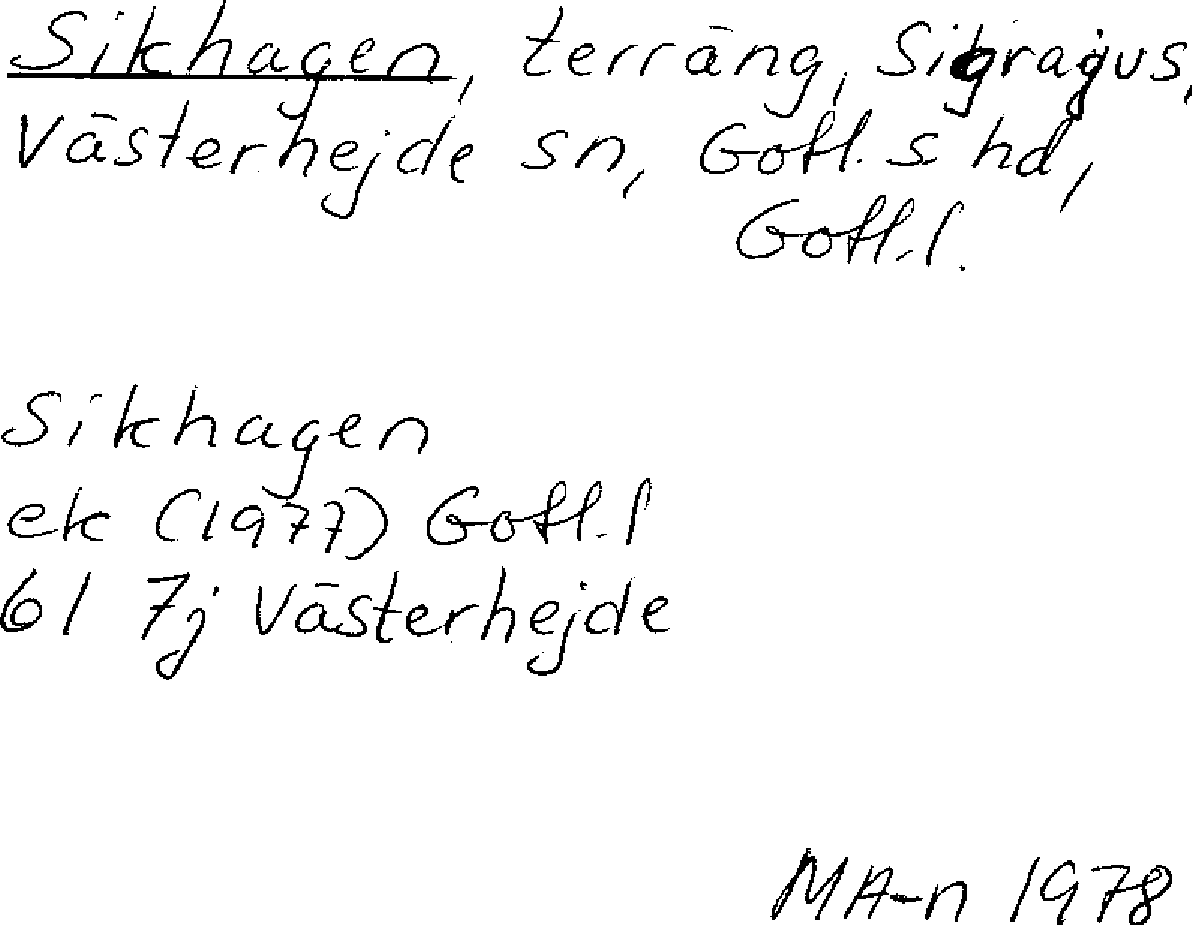 Sikhagen, terräng, Sigrajvus,
Västerhejde sn, Gotl. s hd,
Gotl. l.
Sikhagen
ek (1977) Gotl. l
6I 7j Västerhejde
MA-n 1978